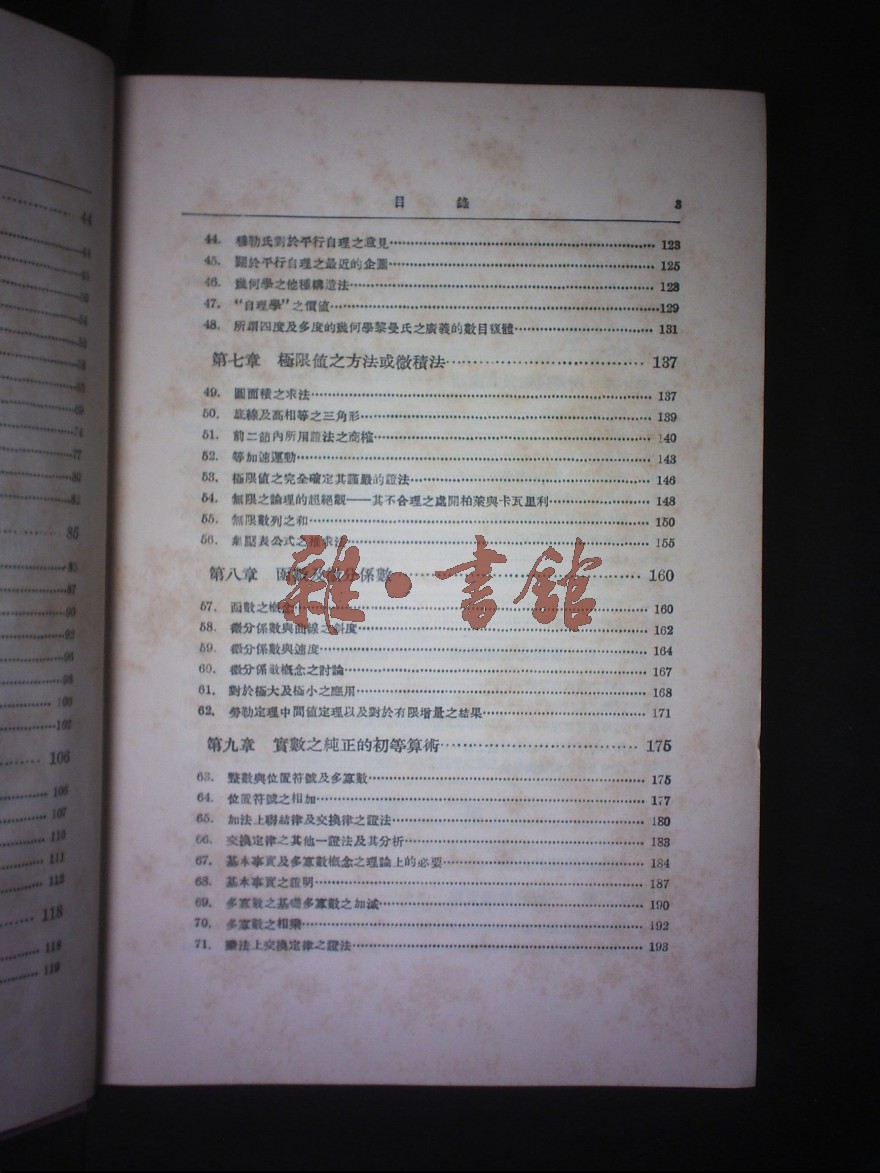 44
44
45
50
54
54
58
62
69
74
77
80
82
85
85
87
90
92
96
98
100
102
106
106
107
110
111
112
118
118
119
目 錄 3
44. 穆勒氏對於平行自理之意見 123
45. 關於平行自理之最近的企圖 125
46. 幾何學之他種構造法 128
47. “自理學”之價値 129
48. 所謂四度及多度的幾何學黎曼氏之廣義的數目複體 131
第七章 極限値之方法或微積法 137
49. 圓面積之求法 137
50. 底線及高相等之三角形 139
51. 前二節內所用證法之商榷 140
52. 等加速運動 143
53. 極限値之完全確定其謹嚴的證法 146
54. 無限之論理的超絕觀——其不合理之處開柏萊與卡瓦里利 148
55. 無限數列之和 150
56. 氣壓表公式之推求法 155
第八章 函數及微分係數 160
57. 函數之概念 160
58. 微分係數與曲線之斜度 162
59. 微分係數與速度 164
60. 微分係數概念之討論 167
61. 對於極大及極小之應用 168
62. 勞勒定理中間値定理以及對於有限增量之結果 171
第九章 實數之純正的初等算術 175
63. 整數與位置符號及多寡數 175
64. 位置符號之相加 177
65. 加法上聯結律及交換律之證法 180
66. 交換定律之其他一證法及其分析 183
67. 基本事實及多寡數概念之理論上的必要 184
68. 基本事實之證明 187
69. 多寡數之基礎多寡數之加減 190
70. 多寡數之相乘 192
71. 乘法上交換定律之證法 193
雜·書館